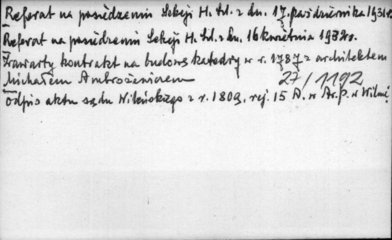 Referat na posiedzeniu Sekcji H. Szt. z dn. 17 października 193
Referat na posiedzeniu Sekcji H. Szt. z dn. 16 kwietnia 1932 r.
Zawarty kontrakt na budowę katedry w r. 1787 z architektem
Michałem Ambrożeniorem
27/1192
Odpis aktu sądu Wileńskiego z r. 1803, rej. 15 A. w Ar. P. w Wilnie